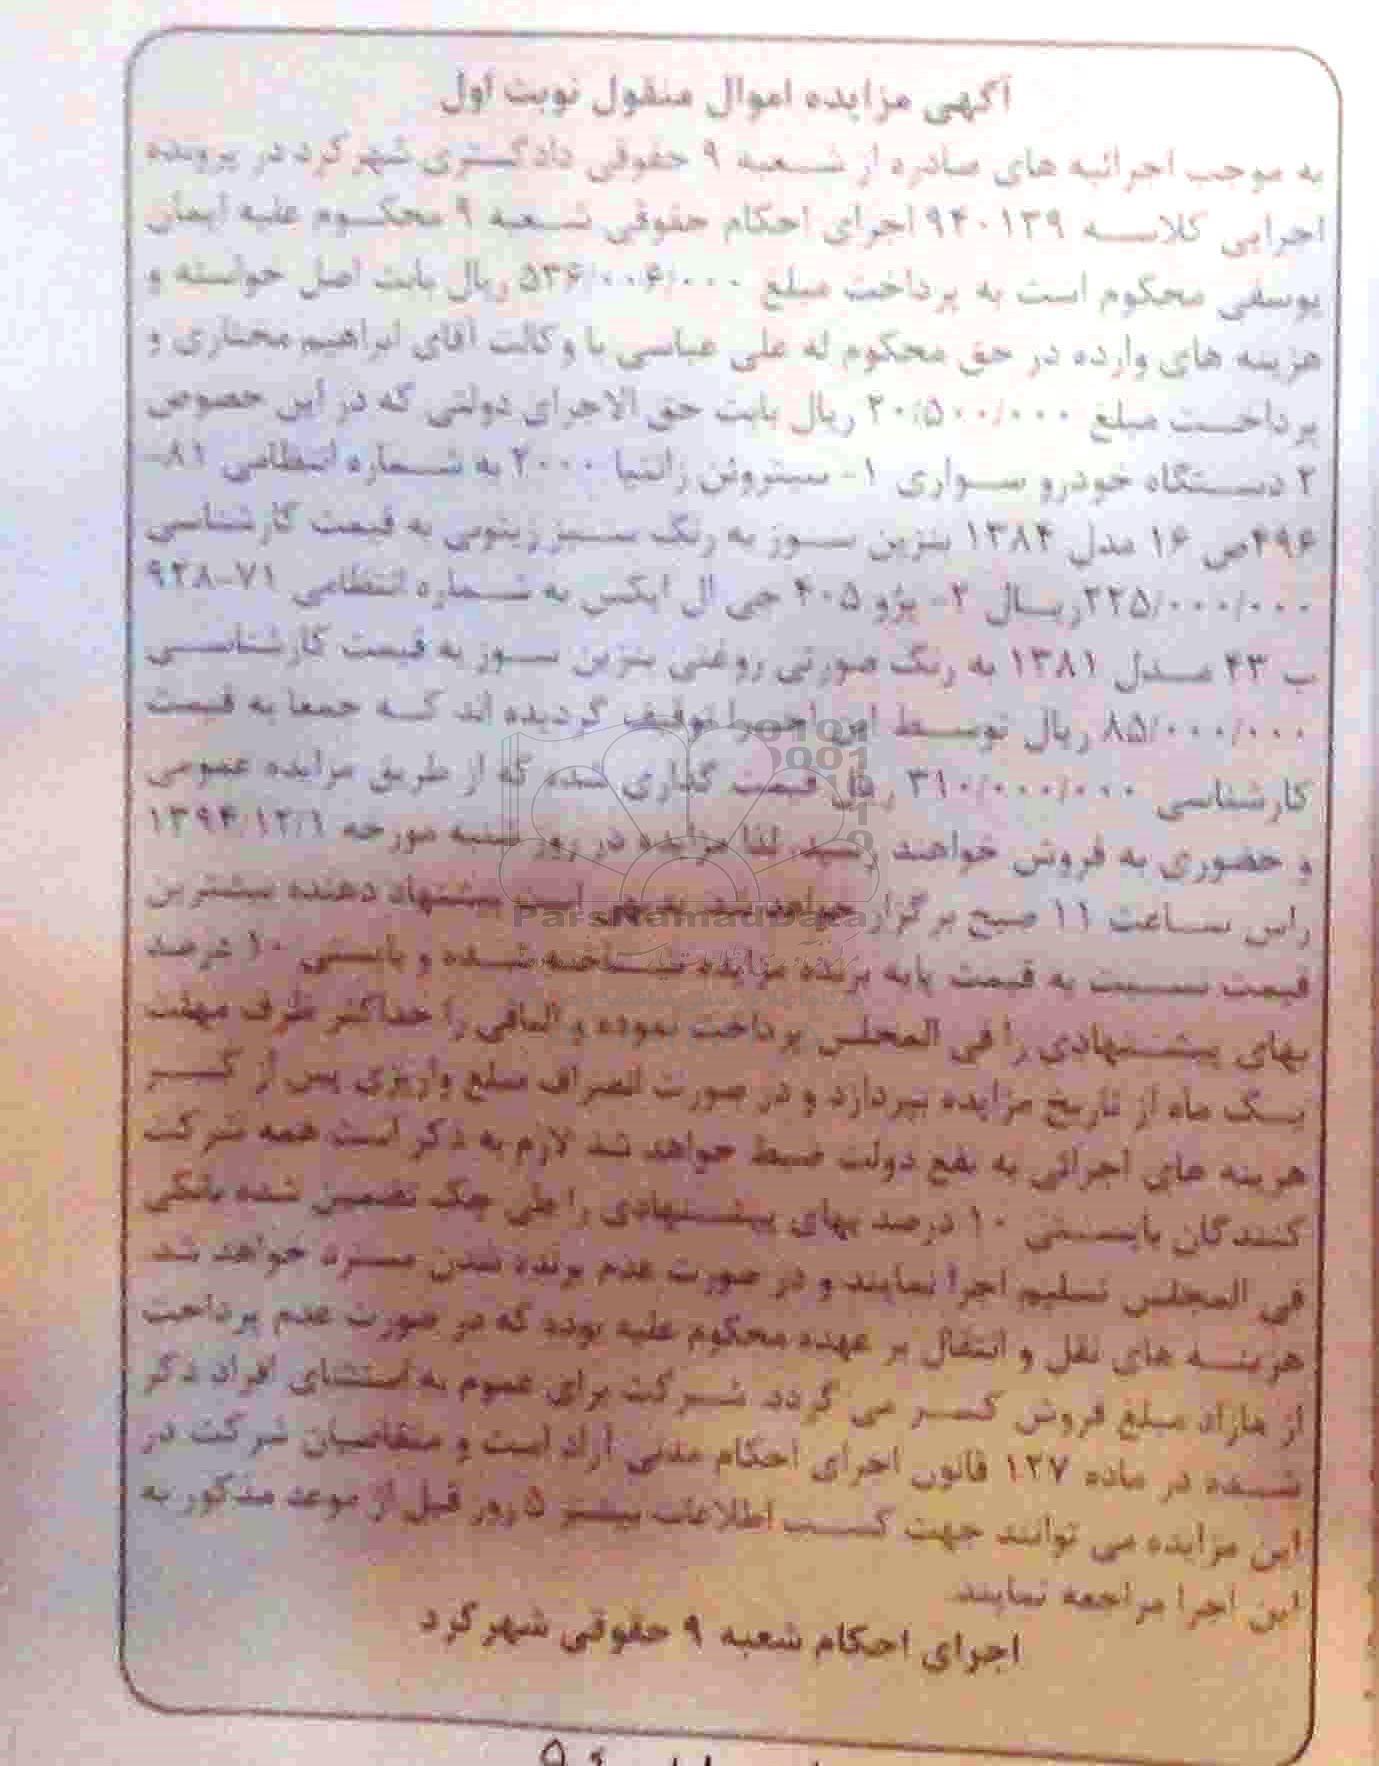 آگهی مزایده اموال منقول نوبت اول
به موجب اجرائیه های صادره از شعبه ۹ حقوقی دادگستری شهرکرد در پرونده
اجرایی کلاسه ۹۴۰۱۳۹ اجرای احکام حقوقی شعبه ۹ محکوم علیه ایمان
یوسفی محکوم است به پرداخت مبلغ ۵۳۶/۰۰۶/۰۰۰ ریال بابت اصل خواسته و
هزینه های وارده در حق محکوم له علی عباسی با وکالت آقای ابراهیم مختاری و
پرداخت مبلغ ۲۰/۵۰۰/۰۰۰ ریال بابت حق الاجرای دولتی که در این خصوص
۲ دستگاه خودرو سواری ۱- سیتروئن زانتیا ۲۰۰۰ به شماره انتظامی ۸۱-
۴۹۶ص ۱۶ مدل ۱۳۸۴ بنزین سوز به رنگ سبز زیتونی به قیمت کارشناسی
۲۲۵/۰۰۰/۰۰۰ریال ۲- پژو ۴۰۵ جی ال ایکس به شماره انتظامی ۷۱-۹۲۸
ب ۴۳ مدل ۱۳۸۱ به رنگ صورتی روغنی بنزین سوز به قیمت کارشناسی
۸۵/۰۰۰/۰۰۰ ریال توسط این اجرا توقیف گردیده اند که جمعا به قیمت
کارشناسی ۳۱۰/۰۰۰/۰۰۰ ریال قیمت گذاری شده که از طریق مزایده عمومی
و حضوری به فروش خواهند رسید. لذا مزایده در روز شنبه مورخه ۱۳۹۴/۱۲/۱
راس ساعت ۱۱ صبح برگزار خواهد شد. بدیهی است پیشنهاد دهنده بیشترین
قیمت نسبت به قیمت پایه برنده مزایده شناخته شده و بایستی ۱۰ درصد
بهای پیشنهادی را فی المجلس پرداخت نموده و الباقی را حداکثر ظرف مهلت
یک ماه از تاریخ مزایده بپردازد و در صورت انصراف مبلغ واریزی پس از کسر
هزینه های اجرائی به نفع دولت ضبط خواهد شد لازم به ذکر است همه شرکت
کنندگان بایستی ۱۰ درصد بهای پیشنهادی را طی چک تضمین شده بانکی
فی المجلس تسلیم اجرا نمایند و در صورت عدم برنده شدن مسترد خواهد شد.
هزینه های نقل و انتقال بر عهده محکوم علیه بوده که در صورت عدم پرداخت
از مازاد مبلغ فروش کسر می گردد. شرکت برای عموم به استثنای افراد ذکر
شده در ماده ۱۲۷ قانون اجرای احکام مدنی آزاد است و متقاضیان شرکت در
این مزایده می توانند جهت کسب اطلاعات بیشتر ۵ روز قبل از موعد مذکور به
این اجرا مراجعه نمایند.
اجرای احکام شعبه ۹ حقوقی شهرکرد
ParsNamadData